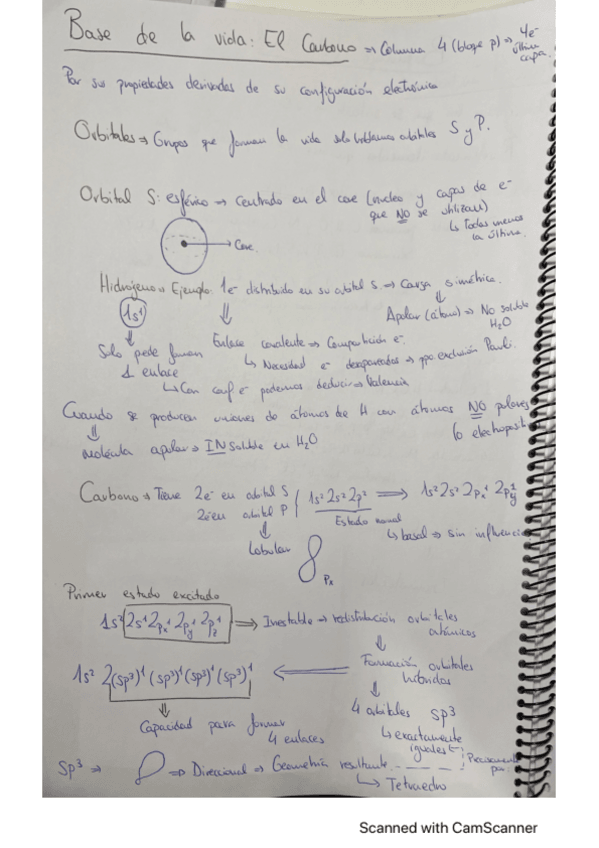 Base de la vida: El Carbono ⇒ Columna 4 (bloque p) ⇒ 4e⁻ última capa.
Por sus propiedades derivadas de su configuración electrónica
Orbitales ⇒ Grupos que forman la vida solo orbitales S y P.
Orbital S: esférico ⇒ Centrado en el core (núcleo y capas de e⁻
que NO se utilizan)
↳ Todas menos
la última.
→ Core
Hidrógeno ⇒ Ejemplo: 1e⁻ distribuido en su orbital s. ⇒ Carga simétrica
1s¹
Apolar (átomo) ⇒ No soluble
H₂O
Enlace covalente ⇒ Compartición e⁻
Solo puede formar
1 enlace
↳ Necesidad e⁻ desapareados ⇒ ppo exclusión Pauli.
↳ Con conf e⁻ podemos deducir ⇒ Valencia
Cuando se producen uniones de átomos de H con átomos NO polares
(o electroposit
molécula apolar ⇒ INsoluble en H₂O
Carbono ⇒ Tiene 2e⁻ en orbital S
2e⁻ en orbital P
1s² 2s² 2p² ⇒ 1s² 2s² 2px¹ 2py¹
Estado normal
↳ basal ⇒ sin influencia
Lobular
Px
Primer estado excitado
1s² 2s¹ 2px¹ 2py¹ 2pz¹ ⇒ Inestable ⇒ redistribución orbitales
atómicos
Formación orbitales
híbridos
1s² 2(sp³)¹ (sp³)¹ (sp³)¹ (sp³)¹
4 orbitales sp³
↳ exactamente
iguales
Capacidad para formar
4 enlaces
Sp³ ⇒ ⇒ Direccional ⇒ Geometría resultante
↳ Tetraedro
Scanned with CamScanner